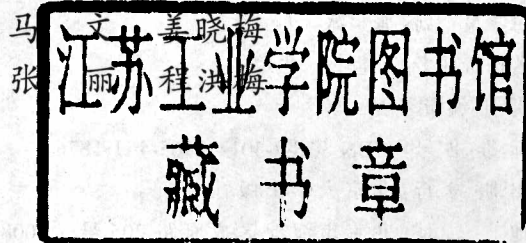 马 文 姜晓梅
张 丽 程洪梅
江苏工业学院图书馆
藏书章